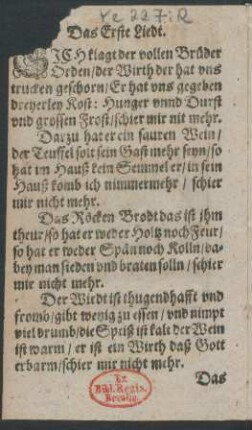 Ye 227:R
Das Erste Liedt.
ICH klagt der vollen Brüder
Orden/der Wirth der hat vns
trucken geschorn/Er hat vns gegeben
dreyerley Kost: Hunger vnnd Durst
vnd grossen Frost/schier mir nit mehr.
Darzu hat er ein sauren Wein/
der Teuffel soit sein Gast mehr seyn/so
hat im Hauß kein Semmel er/in sein
Hauß komb ich nimmermehr/ schier
mir nicht mehr.
Das Röcken Brodt das ist ihm
theur/so hat er weder Holtz noch Feur/
so hat er weder Spän noch Kolln/da-
bey man sieden vnd braten solln/schier
mir nicht mehr.
Der Wirdt ist thugendhafft vnd
fromb/gibt wenig zu essen/vnd nimpt
viel drumb/die Speiß ist kalt der Wein
ist warm/er ist ein Wirth daß Gott
erbarm/schier mir nicht mehr.
Das
Ex
Bibl. Regia
Berolin.